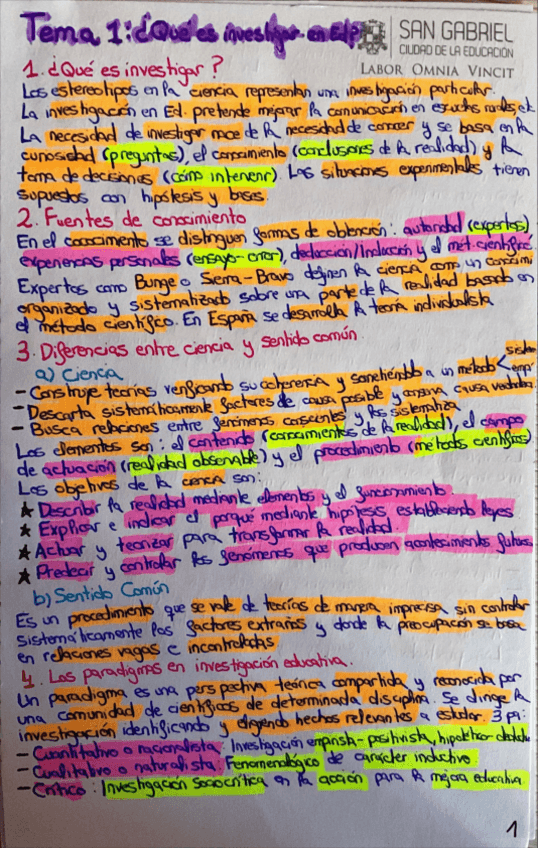 Tema 1: ¿Qué es investigar en EIP?
SAN GABRIEL
CIUDAD DE LA EDUCACIÓN
LABOR OMNIA VINCIT
1. ¿Qué es investigar?
Los estereotipos en la ciencia representan una investigación particular.
La investigación en Ed. pretende mejorar la comunicación en escuelas rurales, et
La necesidad de investigar nace de la necesidad de conocer y se basa en la
curiosidad (preguntas), el conocimiento (conclusiones de la realidad) y la
toma de decisiones (cómo intervenir). Las situaciones experimentales tienen
supuestos con hipótesis y bases.
2. Fuentes de conocimiento
En el conocimiento se distinguen formas de obtención: autoridad (expertos)
experiencias personales (ensayo-error), deducción/inducción y el mét. científic
Expertos como Bunge o Sierra-Bravo definen la ciencia como un conocimi
organizado y sistematizado sobre una parte de la realidad basado en
el método científico. En España se desarrolla la teoría individualista
3. Diferencias entre ciencia y sentido común.
a) Ciencia
- Construye teorías verificando su coherencia y sometiéndola a un método
- Descarta sistemáticamente factores de causa posible y conserva causa verdadera
- Busca relaciones entre fenómenos conscientes y los sistematiza
Los elementos son: el contenido (conocimientos de la realidad), el campo
de actuación (realidad observable) y el procedimiento (métodos científicos)
Los objetivos de la ciencia son:
★ Describir la realidad mediante elementos y el funcionamiento.
★ Explicar e indicar el porqué mediante hipótesis estableciendo leyes
★ Actuar y teorizar para transformar la realidad.
★ Predecir y controlar los fenómenos que producen acontecimientos futuros
b) Sentido Común
Es un procedimiento que se vale de teorías de manera imprecisa sin controlar
sistemáticamente los factores extraños y donde la preocupación se basa
en relaciones vagas e incontroladas
4. Los paradigmas en investigación educativa.
Un paradigma es una perspectiva teórica compartida y reconocida por
una comunidad de científicos de determinada disciplina. Se dirige la
investigación identificando y eligendo hechos relevantes a estudiar. 3 p:
- Cuantitativo o racionalista: Investigación empirista-positivista, hipotético-deductiv
- Cualitativo o naturalista: Fenomenológico de carácter inductivo
- Crítico: Investigación sociocrítica en la acción para la mejora educativa.
1